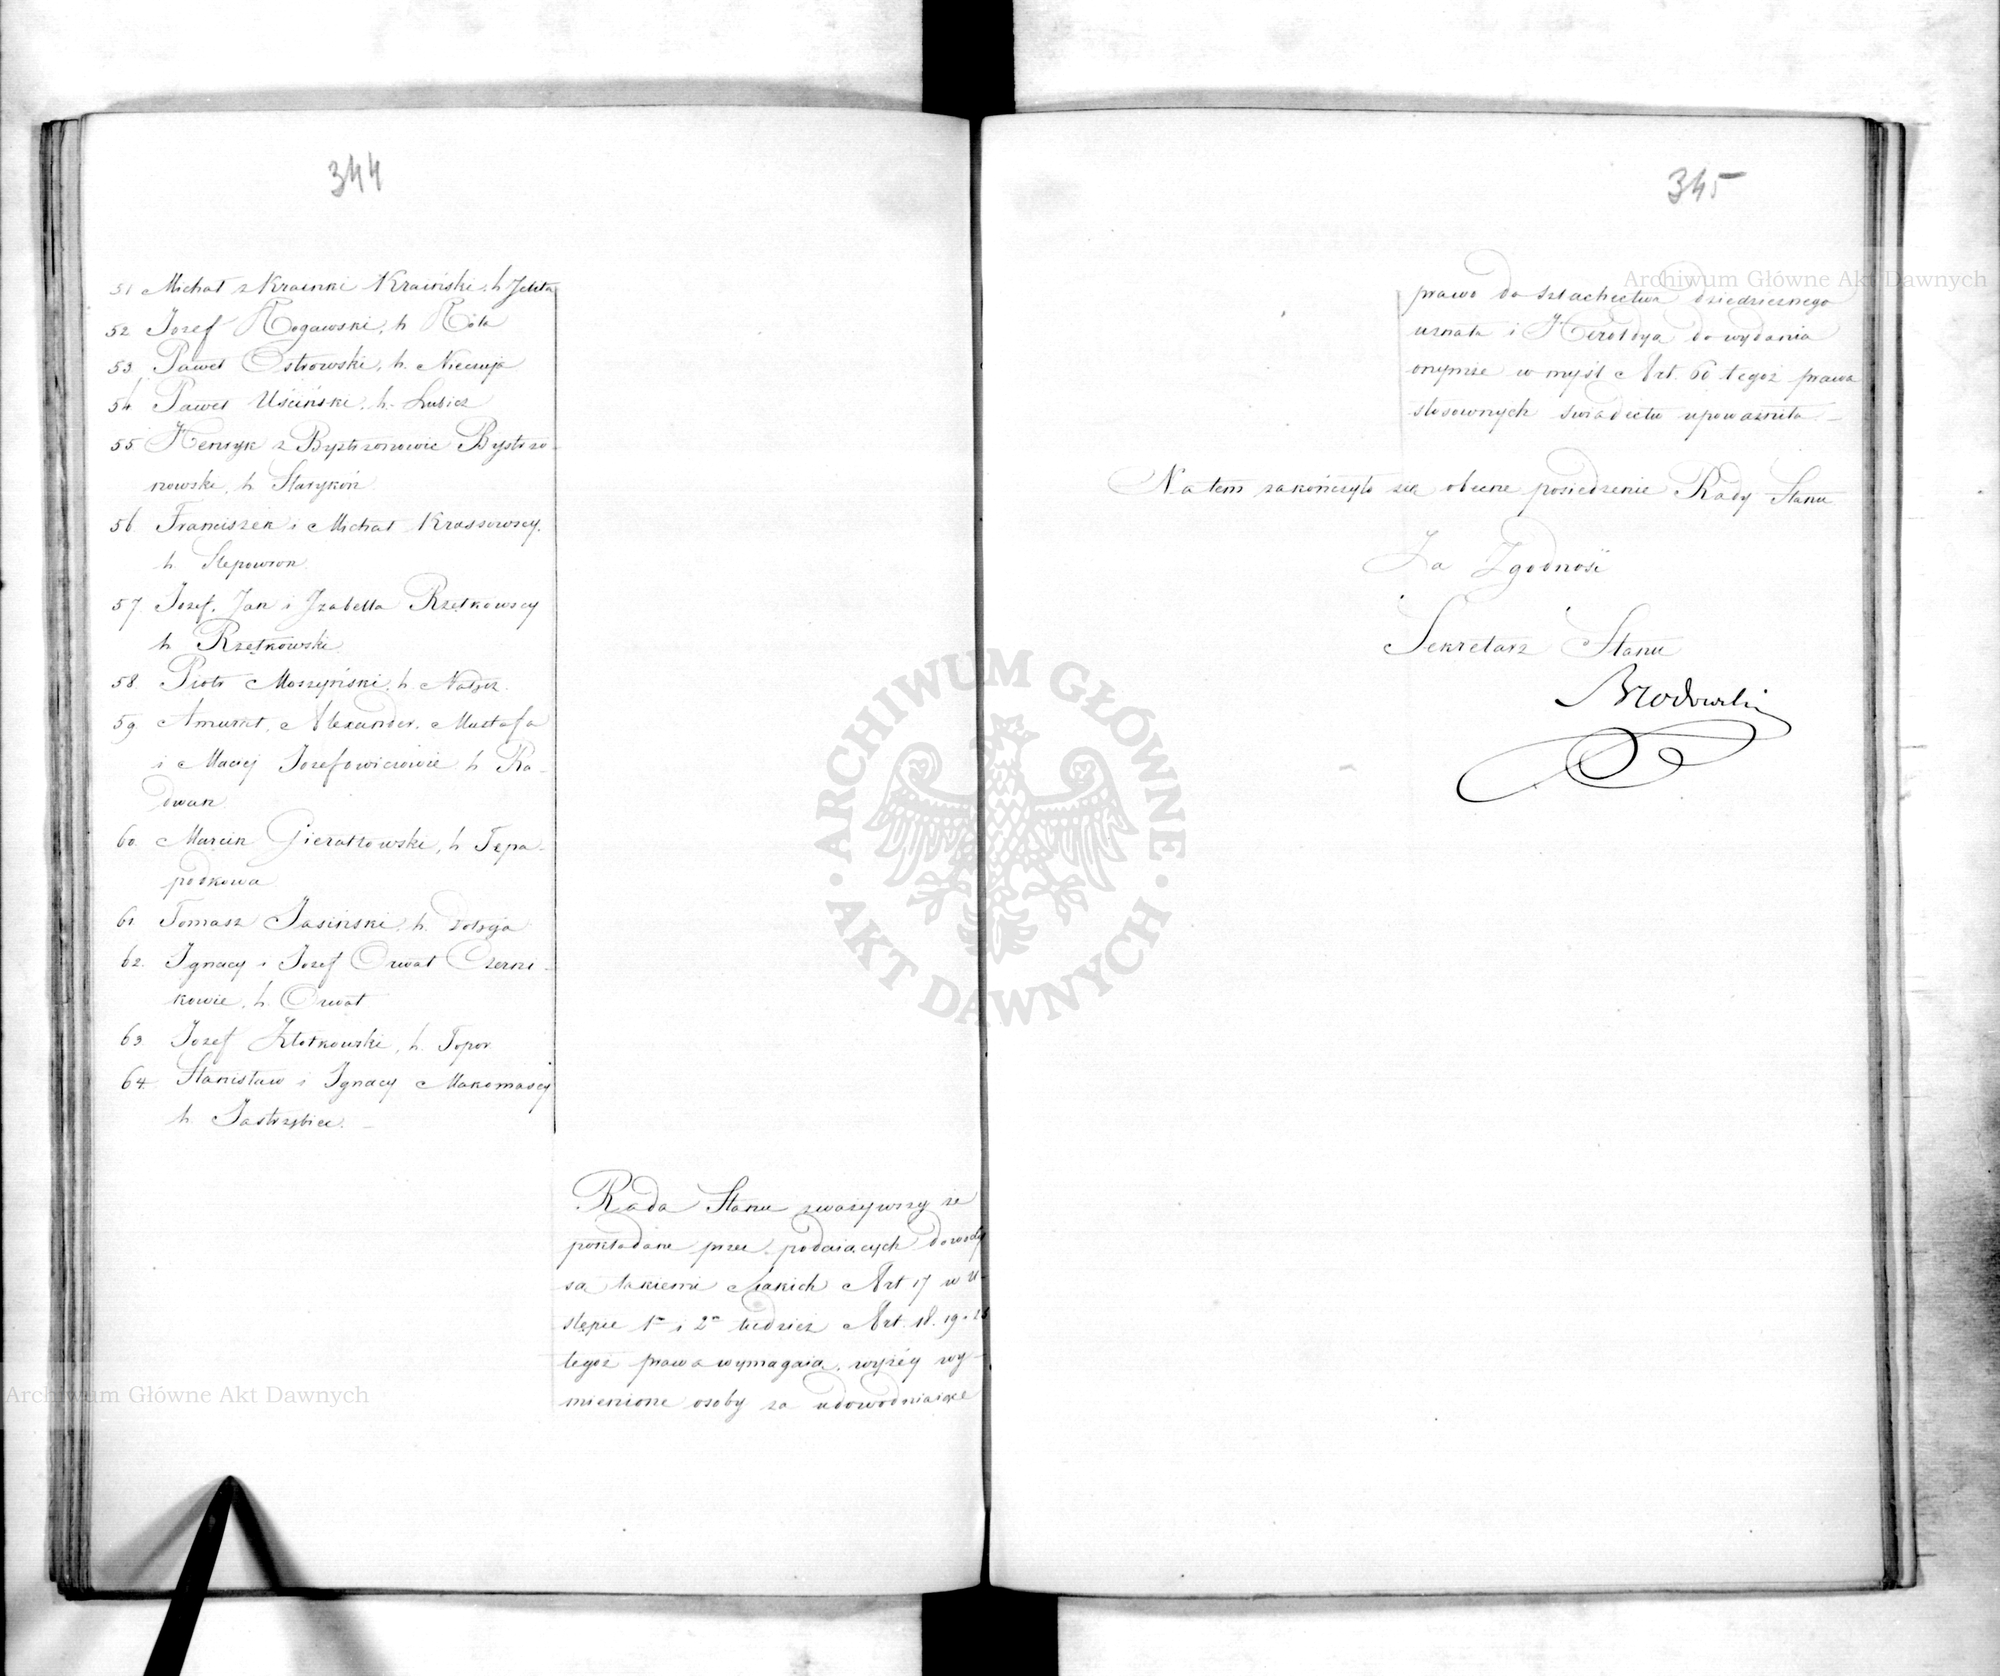 344
51 Michał z Krainki Kraiński, h. Jelita
52 Jozef Rogawski, h Rola
53 Paweł Ostrowski, h. Nieczuja
54 Paweł Uściński, h. Lubicz
55 Henryk z Bystrzonowic Bystrzo-
nowski, h Starykoń
56 Franciszek i Michał Krassowscy,
h. Slepowron
57. Jozef, Jan i Izabella Rzętkowscy
h Rzętkowski
58 Piotr Moszyński, h. Nałęcz.
59 Amurat, Alexander, Mustafa
i Maciej Jozefowiczowie h Ra-
dwan
60. Marcin Gierałtowski, h Tępa-
podkowa
61 Tomasz Jasiński, h. Dołęga
62. Ignacy i Jozef Orwat Czerni-
kowie, h. Orwat
63 Jozef Złotkowski, h. Topor
64. Stanisław i Ignacy Makomascy
h Jastrzębiec. -
Rada Stanu zważywszy że
pokładane przez podaiących dowody
są takiemi iakich Art 17 w U-
stępie 1m i 2m tudzież Art. 18. 19 i 25
tegoż prawa wymagaią, wyżéy wy-
mienione osoby za udowodniaiące
345
prawo do szlachectwa dziedzicznego
uznała i Heroldyą do wydania
onymże w myśl Art. 60 tegoż prawa
stosownych świadectw upoważniła. -
Na tem zakończyło się obecne posiedzenie Rady Stanu
Za Zgodność
Sekretarz Stanu
Brodowski
Archiwum Główne Akt Dawnych
ARCHIWUM GŁÓWNE
· AKT DAWNYCH ·
Archiwum Główne Akt Dawnych